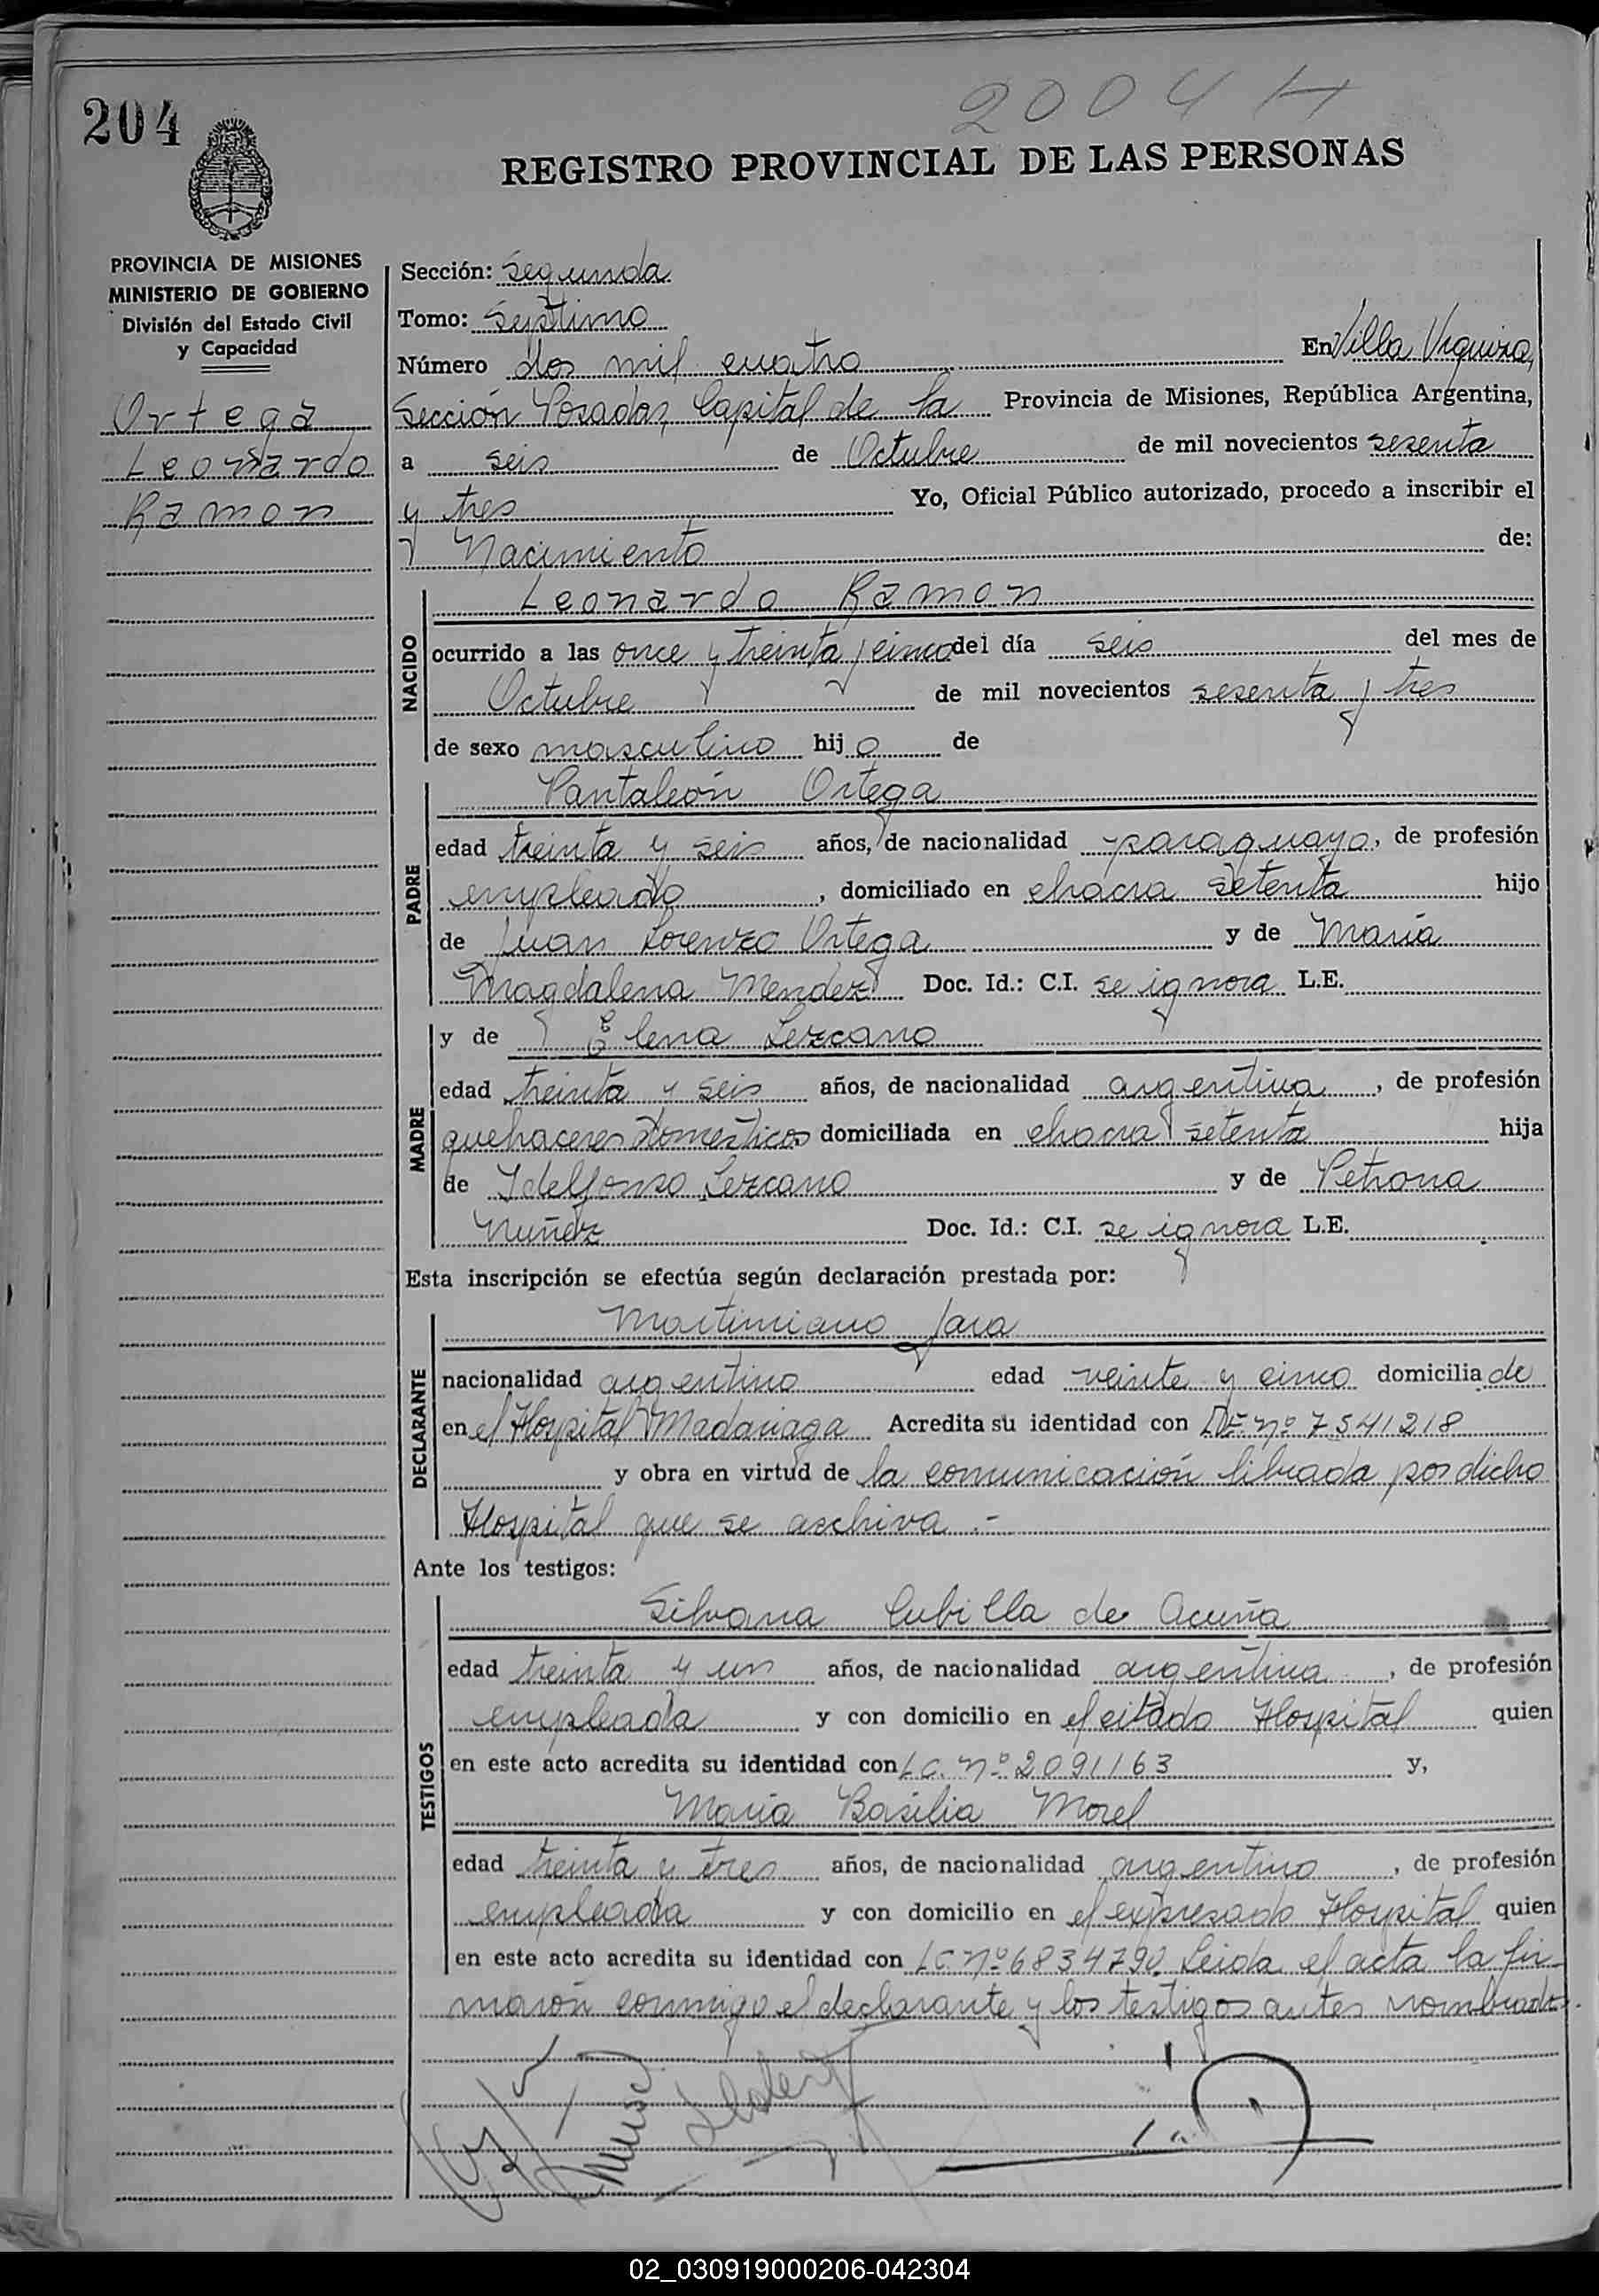 2004 H
204
REGISTRO PROVINCIAL DE LAS PERSONAS
PROVINCIA DE MISIONES
MINISTERIO DE GOBIERNO
División del Estado Civil
y Capacidad
Ortega
Leonardo
Ramon
Sección: Segunda
Tomo: Septimo
Número dos mil cuatro En Villa Urquiza,
Sección Posadas, Capital de la Provincia de Misiones, República Argentina,
a seis de Octubre de mil novecientos sesenta
y tres Yo, Oficial Público autorizado, procedo a inscribir el
Nacimiento de:
NACIDO
Leonardo Ramon
ocurrido a las once y treinta y cinco del día seis del mes de
Octubre de mil novecientos sesenta y tres
de sexo masculino hijo de
PADRE
Pantaleón Ortega
edad treinta y seis años, de nacionalidad paraguaya, de profesión
empleado, domiciliado en chacra setenta hijo
de Juan Lorenzo Ortega y de Maria
Magdalena Mendez Doc. Id.: C.I. se ignora L.E.
MADRE
y de Elena Lezcano
edad treinta y seis años, de nacionalidad argentina, de profesión
quehaceres domesticos domiciliada en chacra setenta hija
de Idelfonso Lezcano y de Petrona
Nuñez Doc. Id.: C.I. se ignora L.E.
Esta inscripción se efectúa según declaración prestada por:
DECLARANTE
Martimiano Jara
nacionalidad argentino edad veinte y cinco domicilia do
en el Hospital Madariaga Acredita su identidad con L.E. nº 7541218
y obra en virtud de la comunicación librada por dicho
Hospital que se archiva.-
Ante los testigos:
TESTIGOS
Silvana Cubilla de Acuña
edad treinta y un años, de nacionalidad argentina, de profesión
empleada y con domicilio en el citado Hospital quien
en este acto acredita su identidad con L.C. nº 2091163 y,
Maria Basilia Morel
edad treinta y tres años, de nacionalidad argentina, de profesión
empleada y con domicilio en el expresado Hospital quien
en este acto acredita su identidad con L.C. nº 6834790. Leida el acta la fir
maron conmigo el declarante y los testigos antes nombrados.
02_030919000206-042304